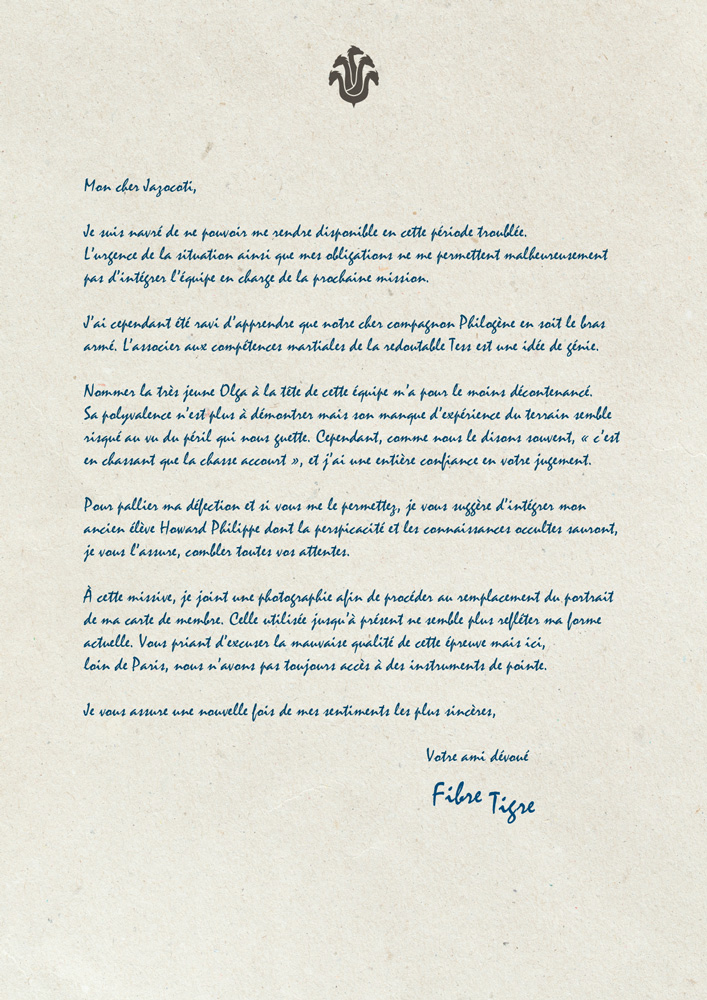 Mon cher Jazocoti,
Je suis navré de ne pouvoir me rendre disponible en cette période troublée.
L'urgence de la situation ainsi que mes obligations ne me permettent malheureusement
pas d'intégrer l'équipe en charge de la prochaine mission.
J'ai cependant été ravi d'apprendre que notre cher compagnon Philogène en soit le bras
armé. L'associer aux compétences martiales de la redoutable Tess est une idée de génie.
Nommer la très jeune Olga à la tête de cette équipe m'a pour le moins décontenancé.
Sa polyvalence n'est plus à démontrer mais son manque d'expérience du terrain semble
risqué au vu du péril qui nous guette. Cependant, comme nous le disons souvent, « c'est
en chassant que la chasse accourt », et j'ai une entière confiance en votre jugement.
Pour pallier ma défection et si vous me le permettez, je vous suggère d'intégrer mon
ancien élève Howard Philippe dont la perspicacité et les connaissances occultes sauront,
je vous l'assure, combler toutes vos attentes.
À cette missive, je joint une photographie afin de procéder au remplacement du portrait
de ma carte de membre. Celle utilisée jusqu'à présent ne semble plus refléter ma forme
actuelle. Vous priant d'excuser la mauvaise qualité de cette épreuve mais ici,
loin de Paris, nous n'avons pas toujours accès à des instruments de pointe.
Je vous assure une nouvelle fois de mes sentiments les plus sincères,
Votre ami dévoué
Fibre Tigre